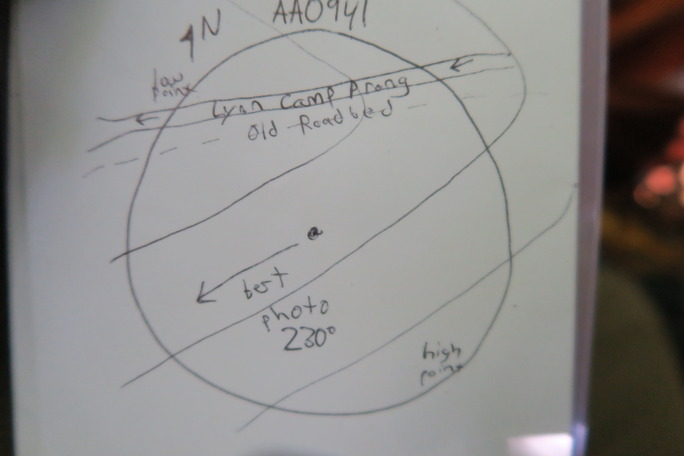 N
AA0941
low
point
Lyon Camp Prong
Old Roadbed
best
photo
230°
high
point